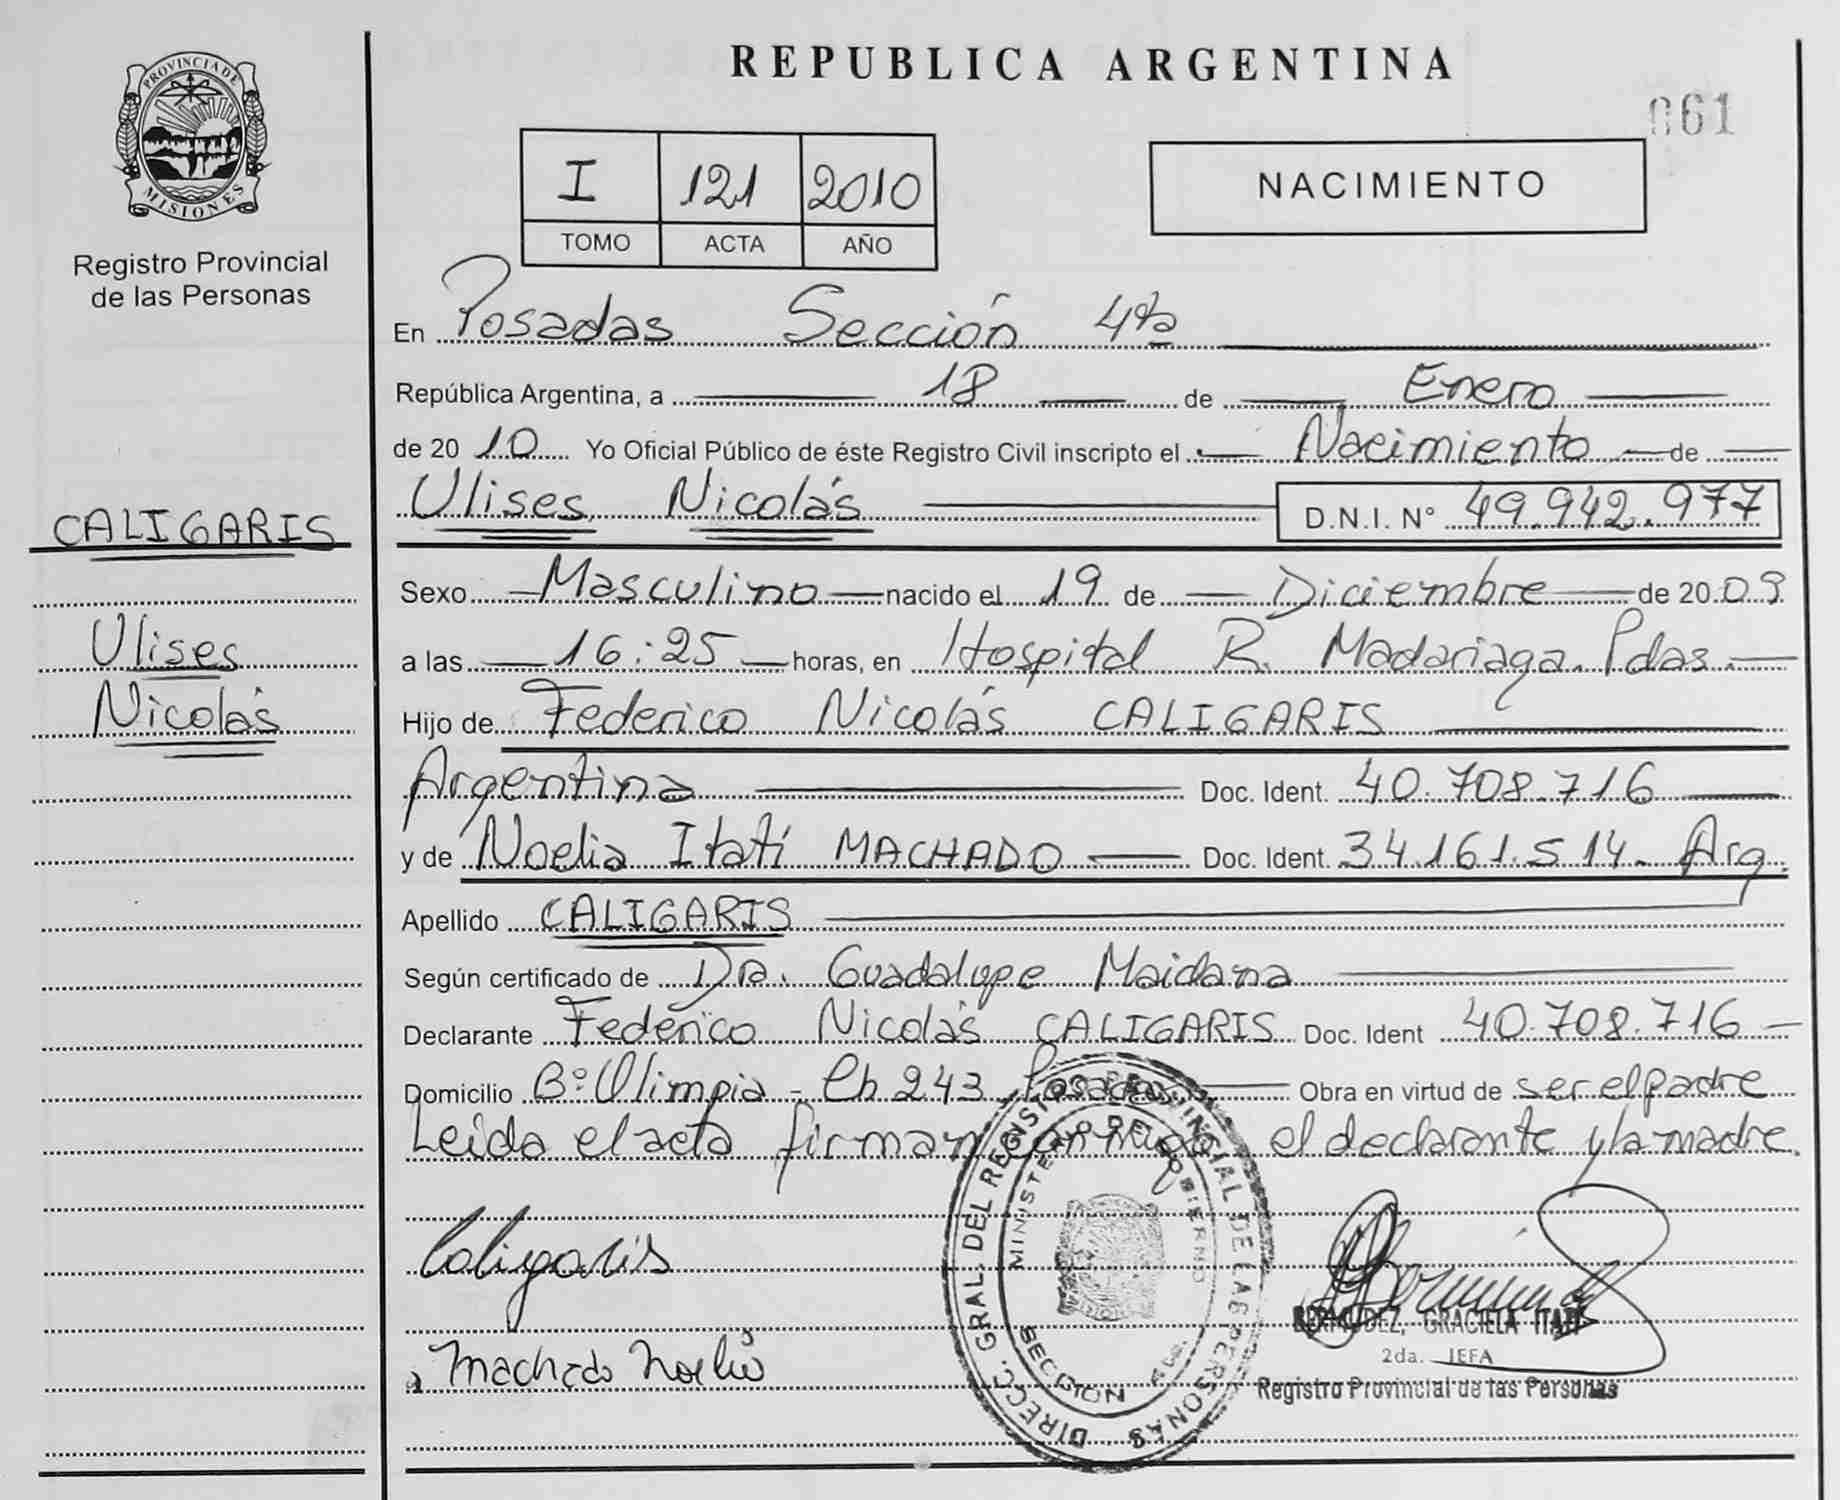 PROVINCIA DE
MISIONES
Registro Provincial
de las Personas
CALIGARIS
Ulises
Nicolás
REPUBLICA ARGENTINA
061
I 121 2010
TOMO ACTA AÑO
NACIMIENTO
En Posadas Sección 4ta
República Argentina, a 18 de Enero
de 20 10 Yo Oficial Público de éste Registro Civil inscripto el Nacimiento de
Ulises Nicolás D.N.I. N° 49.942.977
Sexo Masculino nacido el 19 de Diciembre de 20 09
a las 16:25 horas, en Hospital R. Madariaga. Pdas.
Hijo de Federico Nicolás CALIGARIS
Argentina Doc. Ident. 40.708.716
y de Noelia Itatí MACHADO Doc. Ident. 34.161.514. Arg.
Apellido CALIGARIS
Según certificado de Dra. Guadalupe Maidana
Declarante Federico Nicolás CALIGARIS Doc. Ident 40.708.716
Domicilio B° Olimpia - Ch 243 Posadas Obra en virtud de ser el padre
Leida el acta firman conmigo el declarante y la madre.
Caligaris
Machado Noelia
DIRECC. GRAL. DEL REGISTRO PROVINCIAL DE LAS PERSONAS
MINISTERIO DE GOBIERNO
SECCION 4ta.
BERMUDEZ, GRACIELA ITATI
2da. JEFA
Registro Provincial de las Personas